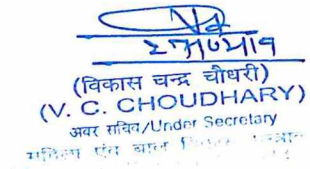 27/02/19
(विकास चन्द्र चौधरी)
(V. C. CHOUDHARY)
अवर सचिव/Under Secretary
एवं बाल